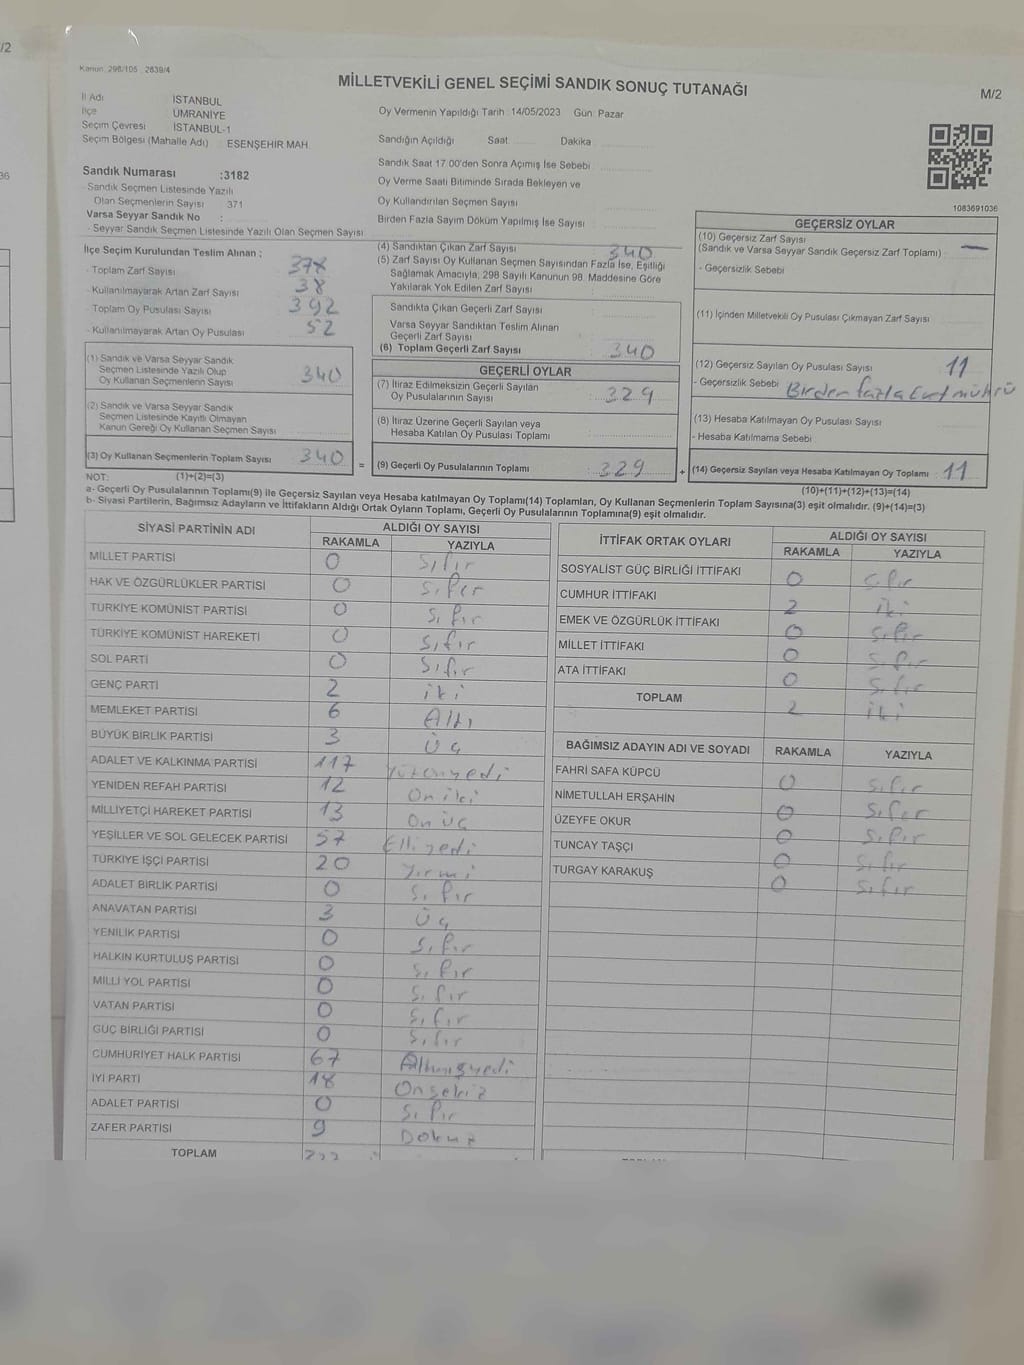 /2
36
Kanun: 298/105 , 2839/4
MİLLETVEKİLİ GENEL SEÇİMİ SANDIK SONUÇ TUTANAĞI
M/2
İl Adı İSTANBUL
İlçe ÜMRANİYE
Seçim Çevresi İSTANBUL-1
Seçim Bölgesi (Mahalle Adı) ESENŞEHİR MAH.
Oy Vermenin Yapıldığı Tarih :14/05/2023 Gün: Pazar
Sandığın Açıldığı Saat Dakika
Sandık Saat 17.00'den Sonra Açımış İse Sebebi
Oy Verme Saati Bitiminde Sırada Bekleyen ve
Oy Kullandırılan Seçmen Sayısı
Birden Fazla Sayım Döküm Yapılmış İse Sayısı
1083691036
Sandık Numarası :3182
- Sandık Seçmen Listesinde Yazılı
Olan Seçmenlerin Sayısı 371
Varsa Seyyar Sandık No :
- Seyyar Sandık Seçmen Listesinde Yazılı Olan Seçmen Sayısı
İlçe Seçim Kurulundan Teslim Alınan :
- Toplam Zarf Sayısı 378
- Kullanılmayarak Artan Zarf Sayısı 38
- Toplam Oy Pusulası Sayısı 392
- Kullanılmayarak Artan Oy Pusulası 52
(1) Sandık ve Varsa Seyyar Sandık
Seçmen Listesinde Yazılı Olup
Oy Kullanan Seçmenlerin Sayısı 340
(2) Sandık ve Varsa Seyyar Sandık
Seçmen Listesinde Kayıtlı Olmayan
Kanun Gereği Oy Kullanan Seçmen Sayısı
(3) Oy Kullanan Seçmenlerin Toplam Sayısı 340
=
(4) Sandıktan Çıkan Zarf Sayısı 340
(5) Zarf Sayısı Oy Kullanan Seçmen Sayısından Fazla İse, Eşitliği
Sağlamak Amacıyla, 298 Sayılı Kanunun 98. Maddesine Göre
Yakılarak Yok Edilen Zarf Sayısı
Sandıkta Çıkan Geçerli Zarf Sayısı
Varsa Seyyar Sandıktan Teslim Alınan
Geçerli Zarf Sayısı
(6) Toplam Geçerli Zarf Sayısı 340
GEÇERLİ OYLAR
(7) İtiraz Edilmeksizin Geçerli Sayılan
Oy Pusulalarının Sayısı 329
(8) İtiraz Üzerine Geçerli Sayılan veya
Hesaba Katılan Oy Pusulası Toplamı
(9) Geçerli Oy Pusulalarının Toplamı 329
+
GEÇERSİZ OYLAR
(10) Geçersiz Zarf Sayısı
(Sandık ve Varsa Seyyar Sandık Geçersiz Zarf Toplamı) : —
- Geçersizlik Sebebi
(11) İçinden Milletvekili Oy Pusulası Çıkmayan Zarf Sayısı
(12) Geçersiz Sayılan Oy Pusulası Sayısı 11
- Geçersizlik Sebebi Birden fazla Evet mührü
(13) Hesaba Katılmayan Oy Pusulası Sayısı
- Hesaba Katılmama Sebebi
(14) Geçersiz Sayılan veya Hesaba Katılmayan Oy Toplamı 11
NOT: (1)+(2)=(3)
(10)+(11)+(12)+(13)=(14)
a- Geçerli Oy Pusulalarının Toplamı(9) ile Geçersiz Sayılan veya Hesaba katılmayan Oy Toplamı(14) Toplamları, Oy Kullanan Seçmenlerin Toplam Sayısına(3) eşit olmalıdır. (9)+(14)=(3)
b- Siyasi Partilerin, Bağımsız Adayların ve İttifakların Aldığı Ortak Oyların Toplamı, Geçerli Oy Pusulalarının Toplamına(9) eşit olmalıdır.
SİYASİ PARTİNİN ADI ALDIĞI OY SAYISI
RAKAMLA YAZIYLA
MİLLET PARTİSİ 0 Sıfır
HAK VE ÖZGÜRLÜKLER PARTİSİ 0 Sıfır
TÜRKİYE KOMÜNİST PARTİSİ 0 Sıfır
TÜRKİYE KOMÜNİST HAREKETİ 0 Sıfır
SOL PARTİ 0 Sıfır
GENÇ PARTİ 2 iki
MEMLEKET PARTİSİ 6 Altı
BÜYÜK BİRLİK PARTİSİ 3 Üç
ADALET VE KALKINMA PARTİSİ 117 Yüzonyedi
YENİDEN REFAH PARTİSİ 12 On iki
MİLLİYETÇİ HAREKET PARTİSİ 13 On üç
YEŞİLLER VE SOL GELECEK PARTİSİ 57 Elli yedi
TÜRKİYE İŞÇİ PARTİSİ 20 Yirmi
ADALET BİRLİK PARTİSİ 0 Sıfır
ANAVATAN PARTİSİ 3 Üç
YENİLİK PARTİSİ 0 Sıfır
HALKIN KURTULUŞ PARTİSİ 0 Sıfır
MİLLİ YOL PARTİSİ 0 Sıfır
VATAN PARTİSİ 0 Sıfır
GÜÇ BİRLİĞİ PARTİSİ 0 Sıfır
CUMHURİYET HALK PARTİSİ 67 Altmışyedi
İYİ PARTİ 18 Onsekiz
ADALET PARTİSİ 0 Sıfır
ZAFER PARTİSİ 9 Dokuz
TOPLAM
İTTİFAK ORTAK OYLARI ALDIĞI OY SAYISI
RAKAMLA YAZIYLA
SOSYALİST GÜÇ BİRLİĞİ İTTİFAKI 0 Sıfır
CUMHUR İTTİFAKI 2 iki
EMEK VE ÖZGÜRLÜK İTTİFAKI 0 Sıfır
MİLLET İTTİFAKI 0 Sıfır
ATA İTTİFAKI 0 Sıfır
TOPLAM 2 iki
BAĞIMSIZ ADAYIN ADI VE SOYADI RAKAMLA YAZIYLA
FAHRİ SAFA KÜPCÜ 0 Sıfır
NİMETULLAH ERŞAHİN 0 Sıfır
ÜZEYFE OKUR 0 Sıfır
TUNCAY TAŞÇI 0 Sıfır
TURGAY KARAKUŞ 0 Sıfır